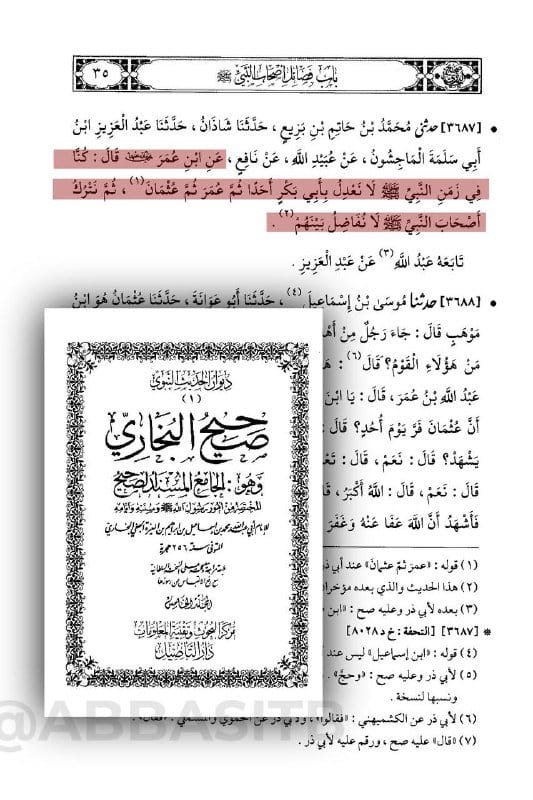 باب فضائل أصحاب النبي ﷺ
٣٥
• [٣٦٨٧] حدثني مُحَمَّدُ بْنُ حَاتِمِ بْنِ بَزِيعٍ ، حَدَّثَنَا شَاذَانُ ، حَدَّثَنَا عَبْدُ الْعَزِيزِ ابْنُ
أَبِي سَلَمَةَ الْمَاجِشُونُ ، عَنْ عُبَيْدِ اللَّهِ ، عَنْ نَافِعٍ ، عَنِ ابْنِ عُمَرَ قَالَ : كُنَّا
فِي زَمَنِ النَّبِيِّ ﷺ لَا نَعْدِلُ بِأَبِي بَكْرٍ أَحَدًا ثُمَّ عُمَرَ ثُمَّ عُثْمَانَ(١) ، ثُمَّ نَتْرُكُ
أَصْحَابَ النَّبِيِّ ﷺ لَا نُفَاضِلُ بَيْنَهُمْ(٢) .
تَابَعَهُ عَبْدُ اللَّهِ(٣) عَنْ عَبْدِ الْعَزِيزِ .
• [٣٦٨٨] حدثنا مُوسَى بْنُ إِسْمَاعِيلَ(٤) ، حَدَّثَنَا أَبُو عَوَانَةَ ، حَدَّثَنَا عُثْمَانُ هُوَ ابْنُ
مَوْهَبٍ قَالَ : جَاءَ رَجُلٌ مِنْ
مَنْ هَؤُلَاءِ الْقَوْمُ؟ قَالَ(٦) :
عَبْدُ اللَّهِ بْنُ عُمَرَ ، قَالَ : يَا ابْنَ
أَنَّ عُثْمَانَ فَرَّ يَوْمَ أُحُدٍ؟ قَالَ :
يَشْهَدْ؟ قَالَ : نَعَمْ ، قَالَ :
قَالَ : نَعَمْ ، قَالَ : اللَّهُ أَكْبَرُ ، قَالَ
فَأَشْهَدُ أَنَّ اللَّهَ عَفَا عَنْهُ وَغَفَرَ
ديوان الحديث النبوي
(١)
صحيح البخاري
وهو : الجامع المسند الصحيح
المختصر من أمور رسول الله ﷺ وسننه وأيامه
للإمام أبي عبد الله محمد بن إسماعيل بن إبراهيم بن المغيرة الجعفي البخاري
المتوفى سنة ٢٥٦ هجرة
المجلد الخامس
مركز البحوث وتقنية المعلومات
دار التأصيل
(١) قوله : «عمر ثم عثمان» عند أبي ذر
(٢) هذا الحديث والذي بعده مؤخران
(٣) بعده لأبي ذر وعليه صح : «ابن
* [٣٦٨٧] [التحفة : خ د ٨٠٢٨]
(٤) قوله : «ابن إسماعيل» ليس عند
(٥) لأبي ذر وعليه صح : «وحج» .
ونسبها لنسخة .
(٦) لأبي ذر عن الكشميهني : «فقالوا» ، ولأبي ذر عن الحموي والمستملي : «فقال» .
(٧) «قال» عليه صح ، ورقم عليه لأبي ذر .
@ABBASITP